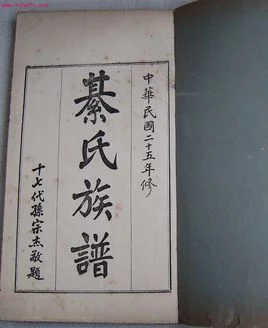 中華民國二十五年修
綦氏族譜
十七代孫宗杰敬題